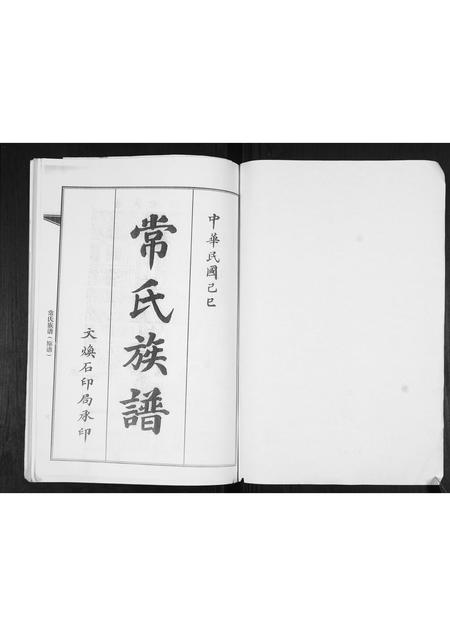 中華民國己巳
常氏族譜
文煥石印局承印
常氏族谱（原谱）